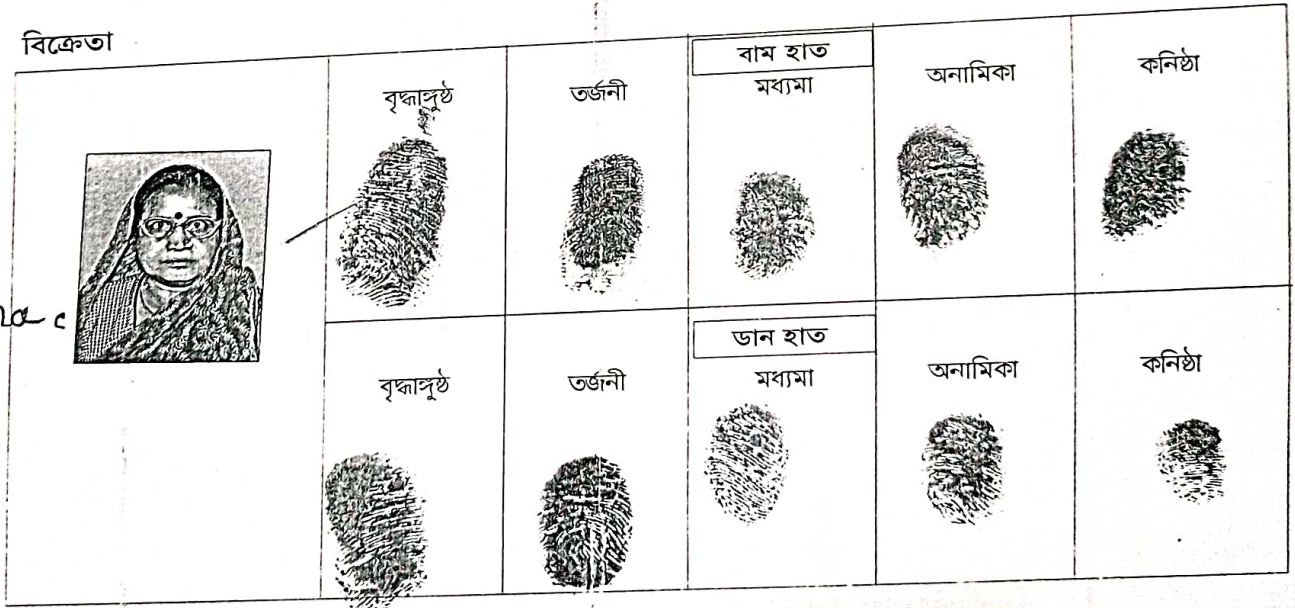 বিক্রেতা
বাম হাত
বৃদ্ধাঙ্গুষ্ঠ তর্জনী মধ্যমা অনামিকা কনিষ্ঠা
ডান হাত
বৃদ্ধাঙ্গুষ্ঠ তর্জনী মধ্যমা অনামিকা কনিষ্ঠা